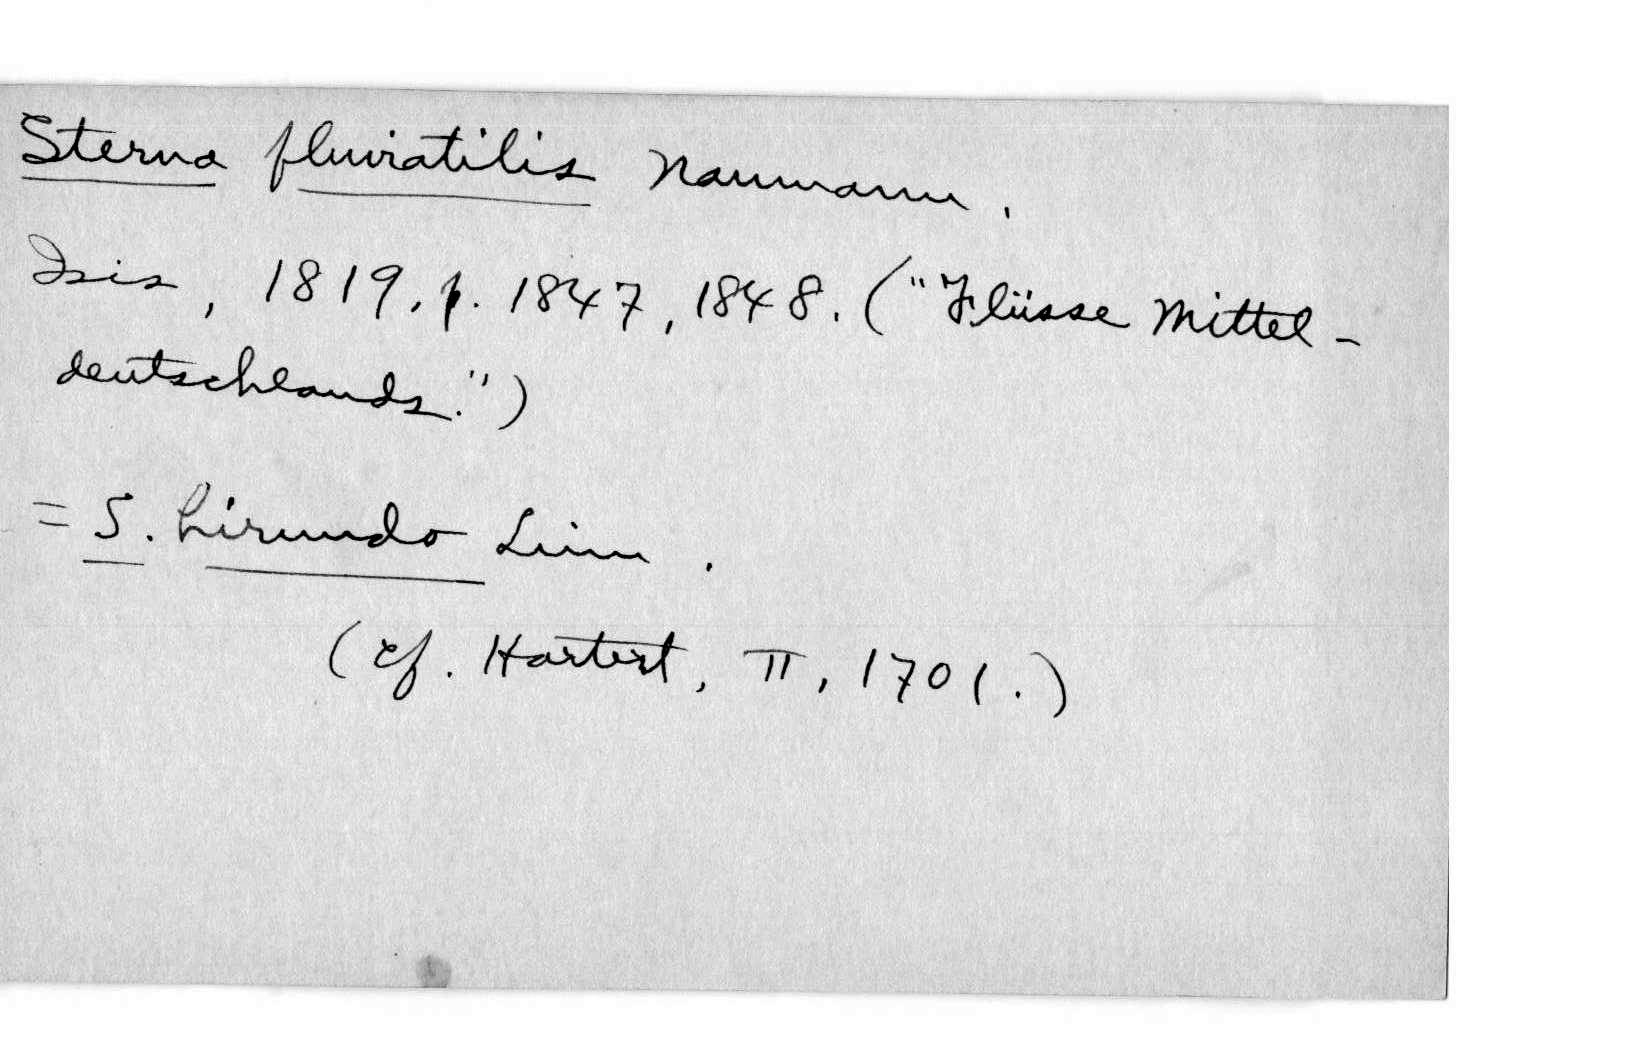 Sterna fluviatilis Naumann.
Isis, 1819, p. 1847, 1848. ("Flüsse Mittel-
deutschlands.")
= S. hirundo Linn.
(cf. Hartert, II, 1701.)